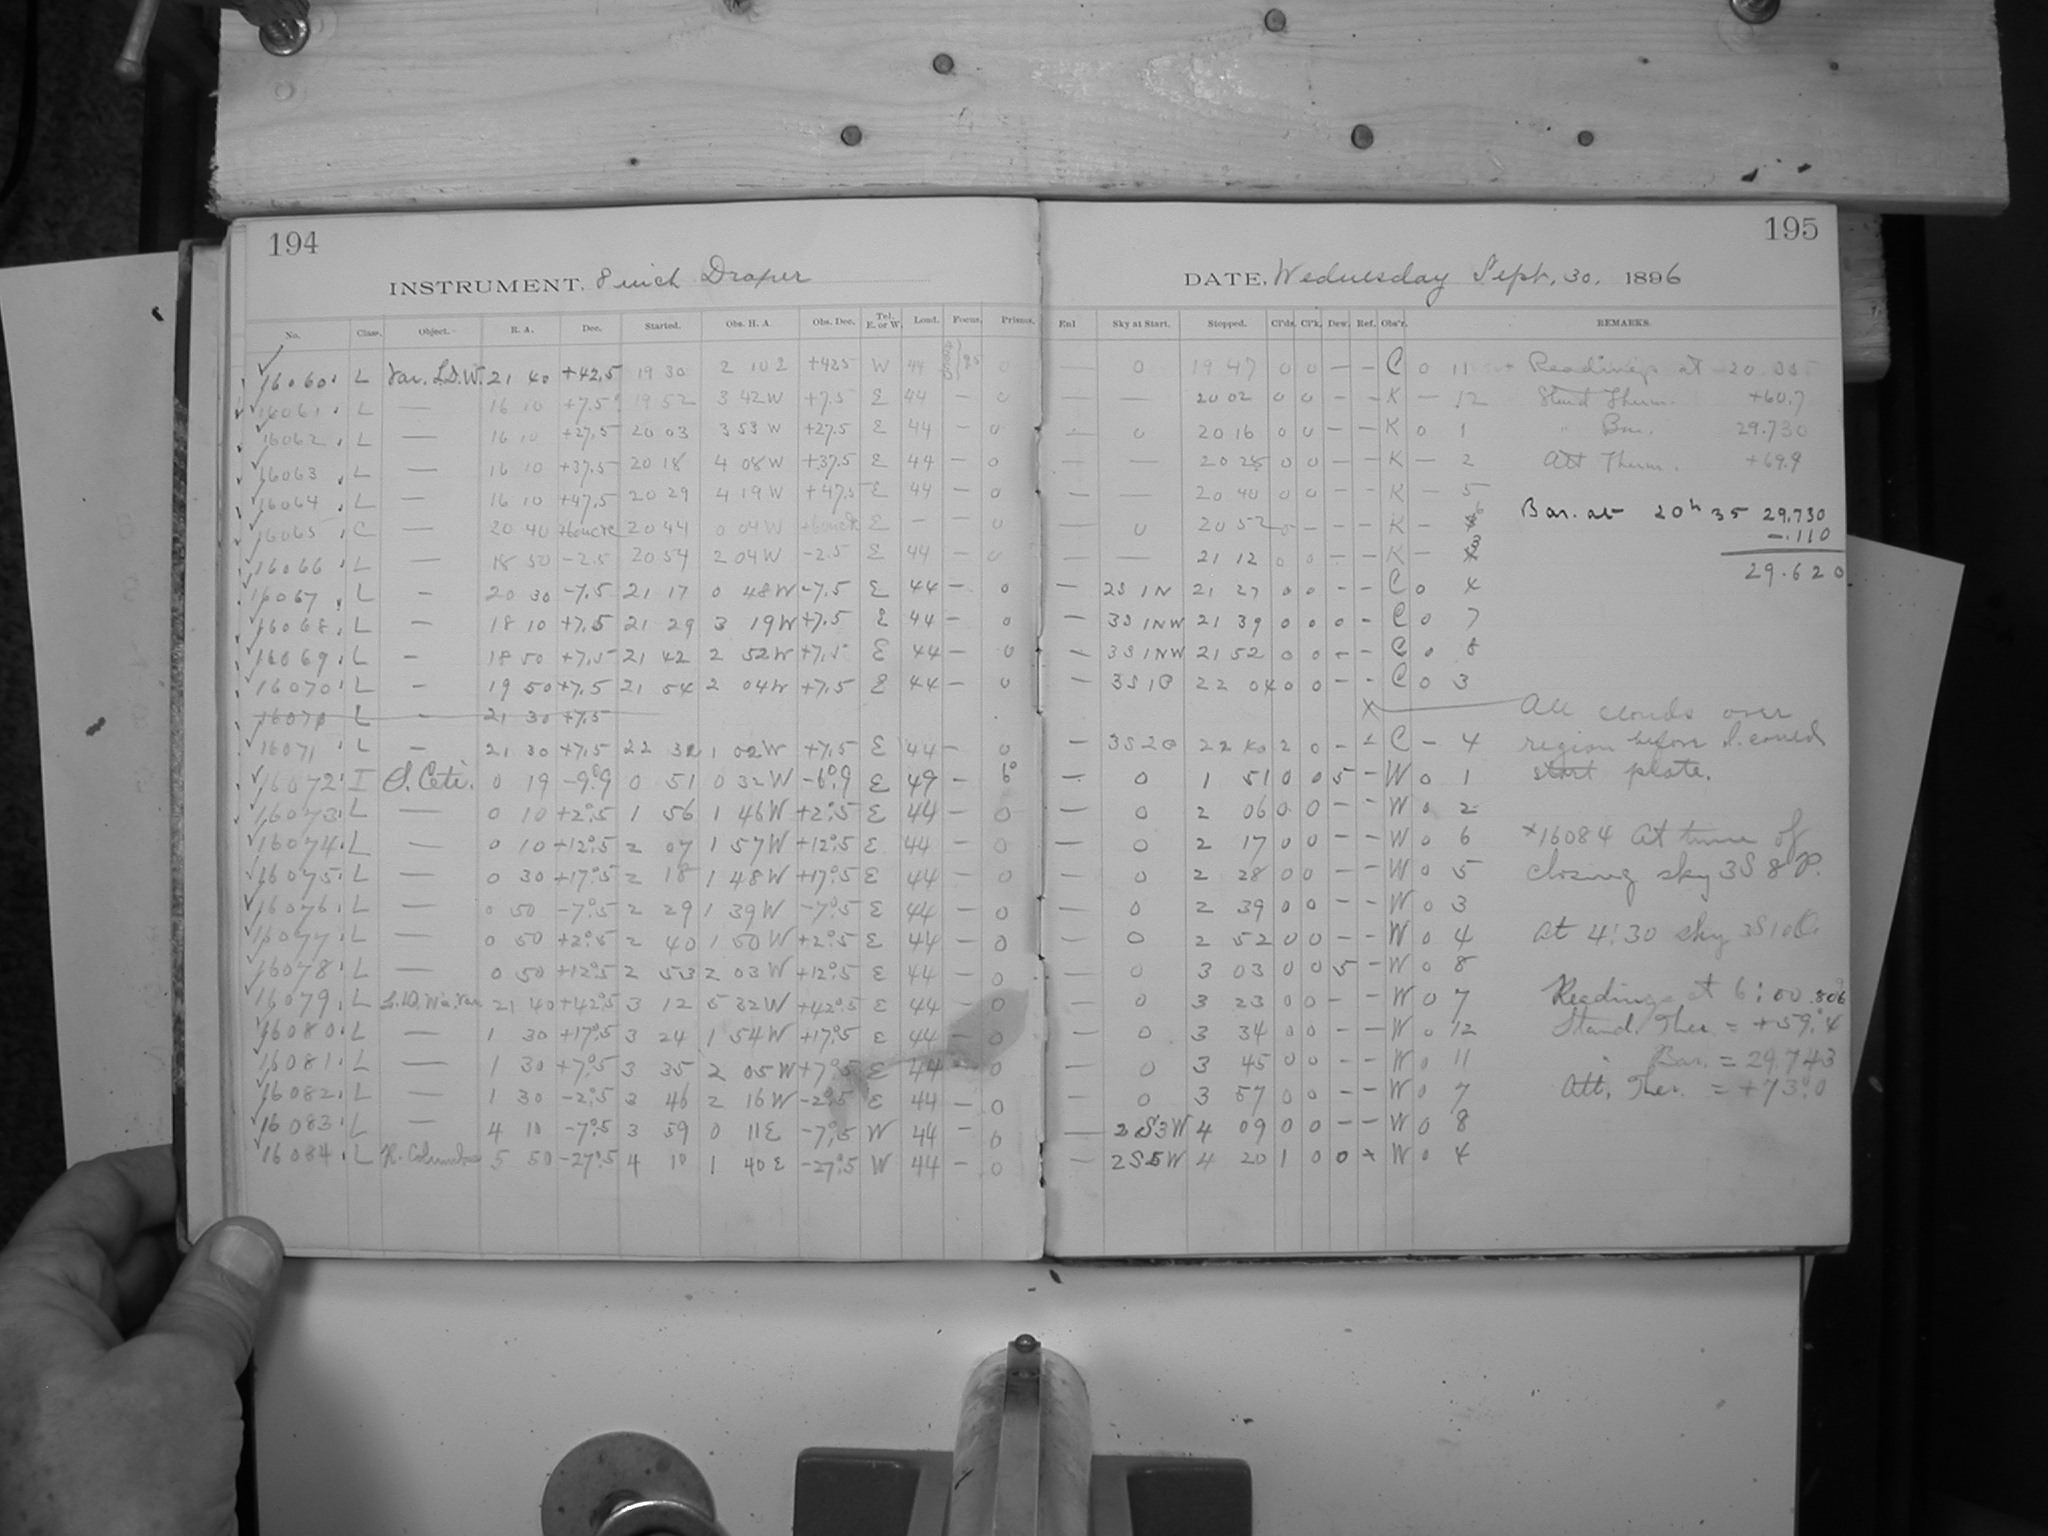 194
INSTRUMENT. 8 inch Draper
No. Class. Object. R. A. Dec. Started. Obs. H. A. Obs. Dec. Tel. E. or W. Lond. Focus. Prisms.
16060 L Var. L.D.W. 21 40 +42.5 19 30 2 10 +42.5 W 44 0
16061 L — 16 10 +7.5 19 52 3 42 W +7.5 E 44 — 0
16062 L — 16 10 +27.5 20 03 3 53 W +27.5 E 44 — 0
16063 L — 16 10 +37.5 20 18 4 08 W +37.5 E 44 — 0
16064 L — 16 10 +47.5 20 29 4 19 W +47.5 E 44 — 0
16065 C — 20 40 20 44 0 04 W E — — 0
16066 L — 18 50 -2.5 20 54 2 04 W -2.5 E 44 — 0
16067 L — 20 30 -7.5 21 17 0 48 W -7.5 E 44 — 0
16068 L — 18 10 +7.5 21 29 3 19 W +7.5 E 44 — 0
16069 L — 18 50 +7.5 21 42 2 52 W +7.5 E 44 — 0
16070 L — 19 50 +7.5 21 54 2 04 W +7.5 E 44 — 0
L — 21 30 +7.5
16071 L — 21 30 +7.5 22 32 1 02 W +7.5 E 44 — 0
16072 I S. Ceti. 0 19 -9°.9 0 51 0 32 W -6°.9 E 49 — 6°
16073 L — 0 10 +2°.5 1 56 1 46 W +2°.5 E 44 — 0
16074 L — 0 10 +12°.5 2 07 1 57 W +12°.5 E 44 — 0
16075 L — 0 30 +17°.5 2 18 1 48 W +17°.5 E 44 — 0
16076 L — 0 50 -7°.5 2 29 1 39 W -7°.5 E 44 — 0
16077 L — 0 50 +2°.5 2 40 1 50 W +2°.5 E 44 — 0
16078 L — 0 50 +12°.5 2 53 2 03 W +12°.5 E 44 — 0
16079 L 21 40 +42°.5 3 12 5 32 W +42°.5 E 44 — 0
16080 L — 1 30 +17°.5 3 24 1 54 W +17°.5 E 44 — 0
16081 L — 1 30 +7°.5 3 35 2 05 W +7°.5 E 44 — 0
16082 L — 1 30 -2°.5 3 46 2 16 W -2°.5 E 44 — 0
16083 L — 4 10 -7°.5 3 59 0 11 E -7°.5 W 44 — 0
16084 L R. Columbae 5 50 -27°.5 4 10 1 40 E -27°.5 W 44 — 0
195
DATE, Wednesday Sept. 30. 1896
Enl Sky at Start. Stopped. Cl'ds. Cl'k. Dew. Ref. Obs'r. REMARKS.
— 0 19 47 0 0 — — C 0 11 Readings at
— — 20 02 0 0 — — K — 12 Stand Therm. +60.7
— 0 20 16 0 0 — — K 0 1 " Bar. 29.730
— — 20 28 0 0 — — K — 2 Att Therm. +69.9
— — 20 40 0 0 — — K — 5
Bar. at 20h 35 29.730
— 0 20 52 0 — — — K — 6
-.110
— — 21 12 0 0 — — K — 3
29.620
— 2S 1N 21 27 0 0 — — C 0 4
— 3S 1NW 21 39 0 0 0 — C 0 7
— 3S 1NW 21 52 0 0 — — C 0 8
— 3S 1P 22 04 0 0 — — C 0 3
X All clouds over
— 3S 2P 22 40 2 0 — C — 4 region before I could
— 0 1 51 0 0 5 — W 0 1 start plate.
— 0 2 06 0 0 — — W 0 2
— 0 2 17 0 0 — — W 0 6 x16084 At time of
— 0 2 28 0 0 — — W 0 5 closing sky 3S 8 P.
— 0 2 39 0 0 — — W 0 3
— 0 2 52 0 0 — — W 0 4 At 4:30 sky 3S10
— 0 3 03 0 0 5 — W 0 8
— 0 3 23 0 0 — — W 0 7 Readings at 6:00
— 0 3 34 0 0 — — W 0 12 Stand. Ther. = +59°.4
— 0 3 45 0 0 — — W 0 11 " Bar. = 29.743
— 0 3 57 0 0 — — W 0 7 Att. Ther. = +73°.0
— 2S3W 4 09 0 0 — — W 0 8
— 2S5W 4 20 1 0 0 x W 0 4